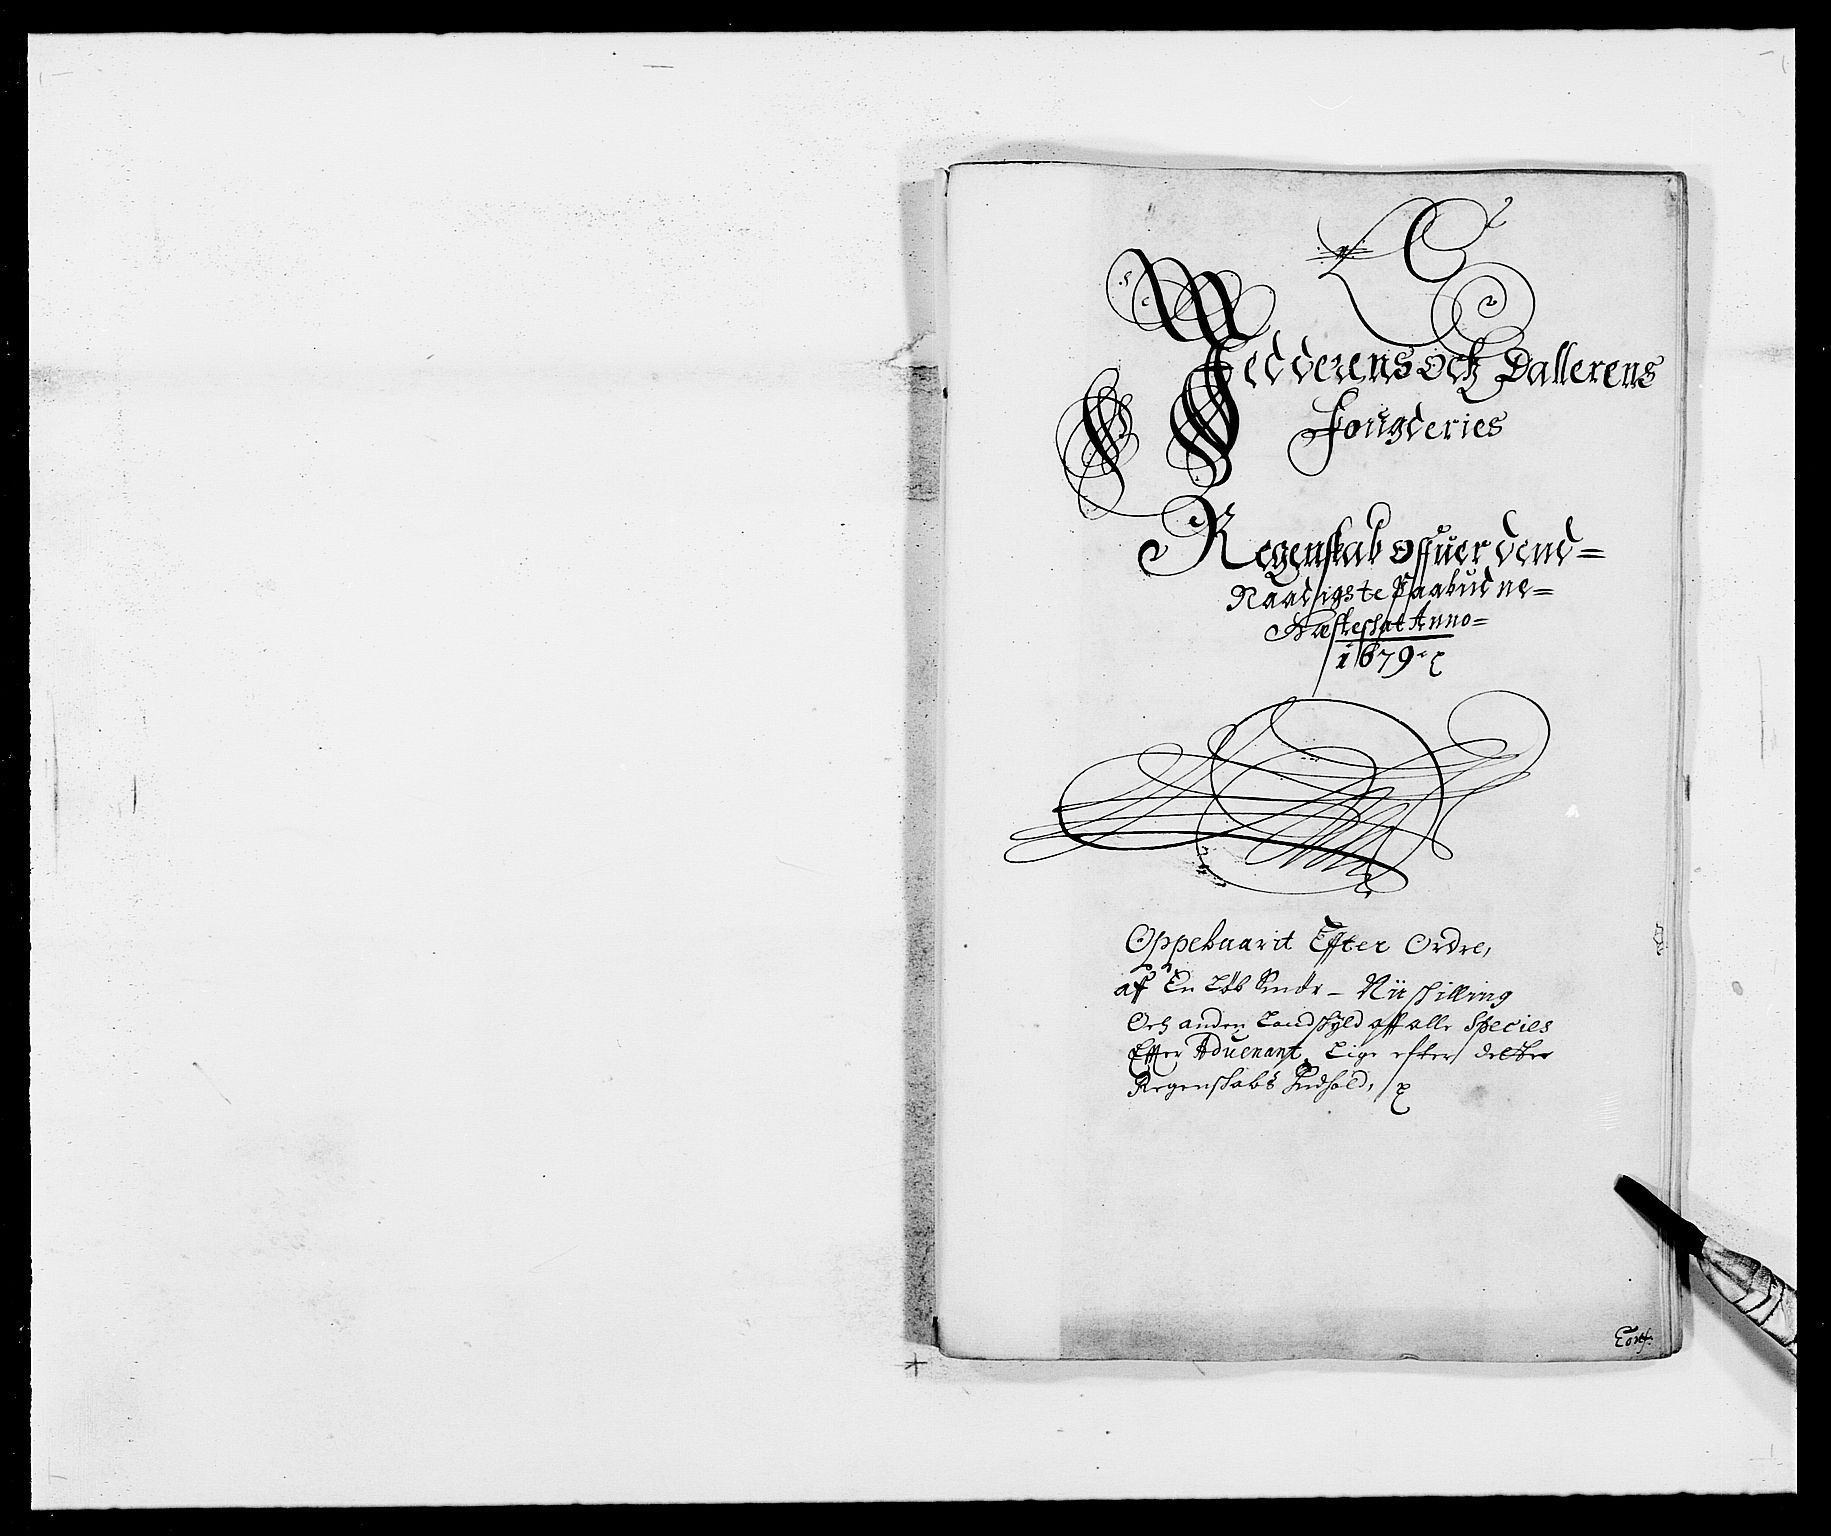 Jedderens och Dallerens
Fougderies
Regenskab offuer dend=
Naadigste Paabudne=
Kæsteschat Anno=
1679
Oppebaarit Effter Ordre,
aff En Løb Smør – Nii schilling
Och anden Landschyld aff alle Species
Effter Aduenant, Lige efter dette
Regenschabs Indhold,